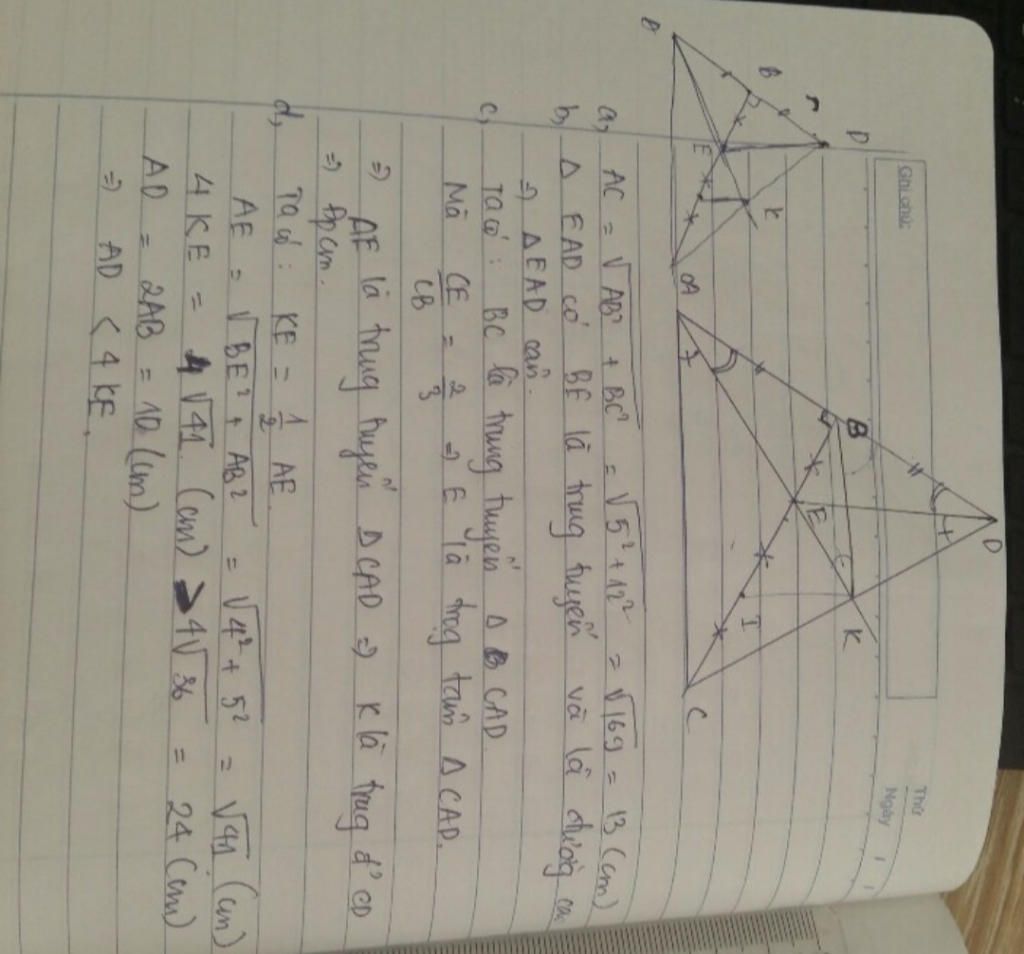 Ghi chú:
Thứ
Ngày / /
A
B
D
E
K
C
A
B
D
E
K
I
C
a, AC = √AB² + BC² = √5² + 12² = √169 = 13 (cm)
b, Δ EAD có BE là trung tuyến và là đường cao
=> Δ EAD cân.
c, Ta có : BC là trung tuyến Δ CAD.
Mà CE/CB = 2/3 => E là trọg tâm Δ CAD.
=> AE là trung tuyến Δ CAD => K là trug đ' CD
=> Đpcm.
d, Ta có : KE = 1/2 AE.
AE = √BE² + AB² = √4² + 5² = √41 (cm)
4 KE = 4√41 (cm) > 4√36 = 24 (cm)
AD = 2AB = 10 (cm)
=> AD < 4 KE.